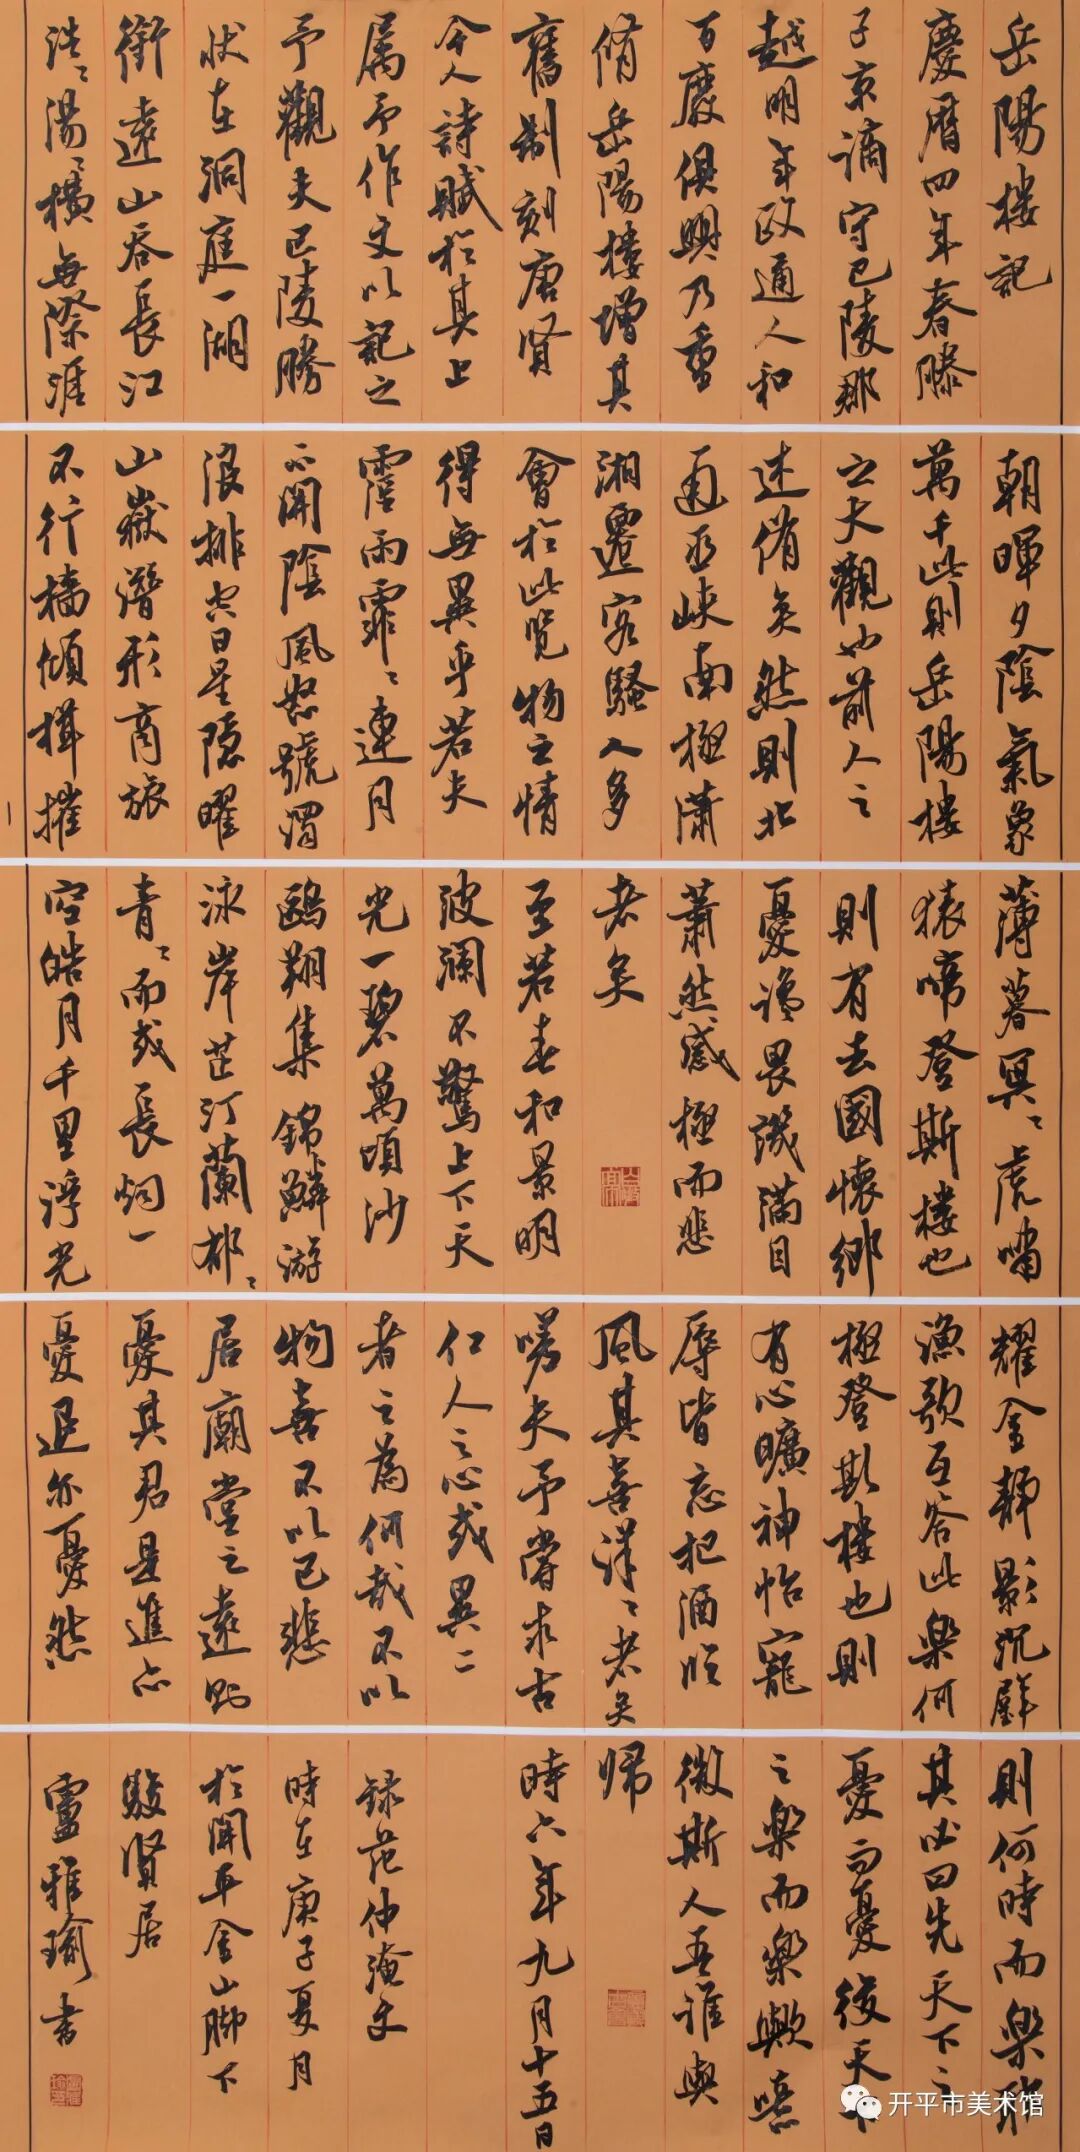 岳陽樓記
慶曆四年春滕
子京謫守巴陵郡
越明年政通人和
百廢俱興乃重
脩岳陽樓增其
舊制刻唐賢
今人詩賦於其上
属予作文以記之
予觀夫巴陵勝
状在洞庭一湖
銜遠山吞長江
浩〻湯〻橫無際涯
朝暉夕陰氣象
萬千此則岳陽樓
之大觀也前人之
述備矣然則北
通巫峽南極瀟
湘遷客騷人多
會於此览物之情
得無異乎若夫
霪雨霏〻連月
不開陰風怒號濁
浪排空日星隱曜
山嶽潛形商旅
不行檣傾楫摧
薄暮冥〻虎嘯
猿啼登斯樓也
則有去國懷鄉
憂讒畏譏滿目
蕭然感極而悲
者矣
至若春和景明
波瀾不驚上下天
光一碧萬頃沙
鷗翔集錦鱗游
泳岸芷汀蘭郁〻
青〻而或長烟一
空皓月千里浮光
耀金靜影沉璧
漁歌互答此樂何
極登斯樓也則
有心曠神怡寵
辱皆忘把酒临
風其喜洋〻者矣
嗟夫予嘗求古
仁人之心或異二
者之為何哉不以
物喜不以己悲
居廟堂之遠則
憂其君是進亦
憂退亦憂然
則何時而樂耶
其必曰先天下之
憂而憂後天下
之樂而樂歟噫
微斯人吾誰與
歸
時六年九月十五日
録范仲淹文
時在庚子夏月
於開平金山脚下
駿賢居
盧雅瑜書
开平市美术馆